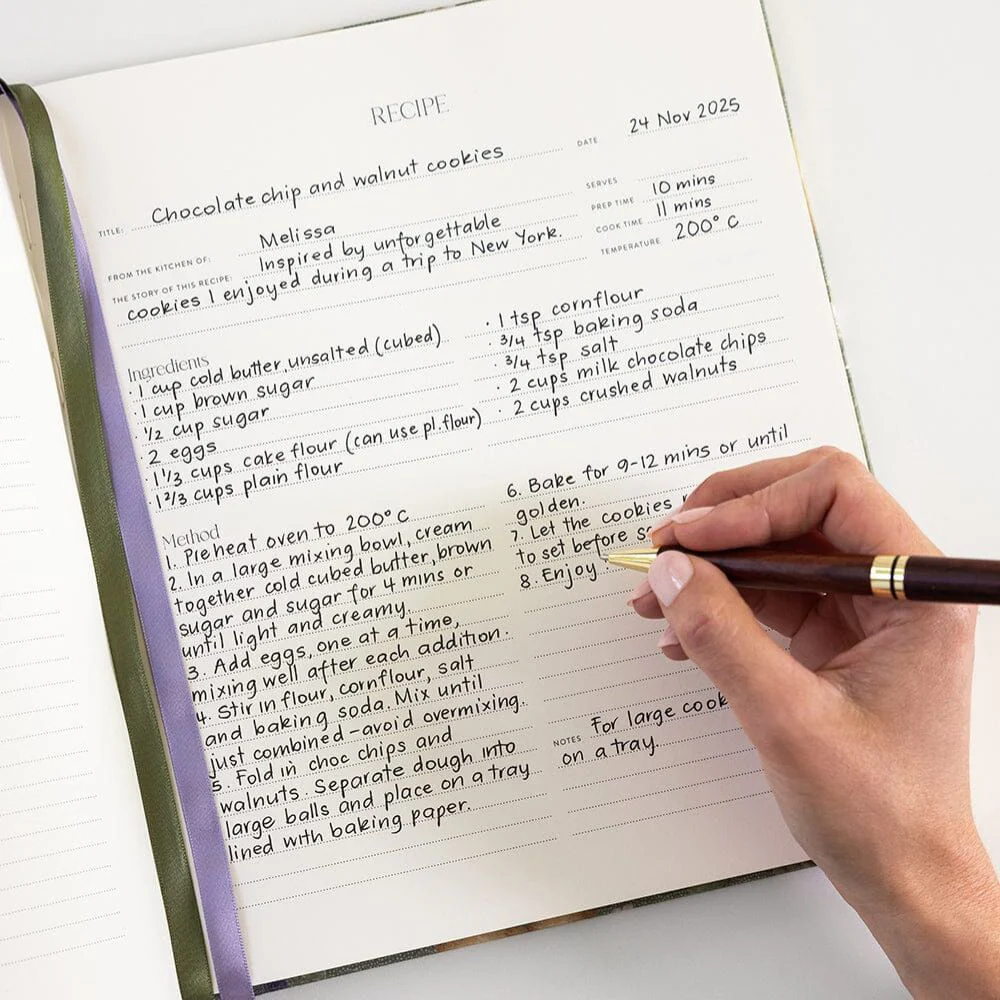 RECIPE
DATE 24 Nov 2025
TITLE: Chocolate chip and walnut cookies
FROM THE KITCHEN OF: Melissa
THE STORY OF THIS RECIPE: Inspired by unforgettable
cookies I enjoyed during a trip to New York.
SERVES
PREP TIME 10 mins
COOK TIME 11 mins
TEMPERATURE 200° C
Ingredients
· 1 cup cold butter, unsalted (cubed)
· 1 cup brown sugar
· 1/2 cup sugar
· 2 eggs
· 1 1/3 cups cake flour (can use pl.flour)
· 1 2/3 cups plain flour
· 1 tsp cornflour
· 3/4 tsp baking soda
· 3/4 tsp salt
· 2 cups milk chocolate chips
· 2 cups crushed walnuts
Method
1. Preheat oven to 200° C
2. In a large mixing bowl, cream
together cold cubed butter, brown
sugar and sugar for 4 mins or
until light and creamy.
3. Add eggs, one at a time,
mixing well after each addition.
4. Stir in flour, cornflour, salt
and baking soda. Mix until
just combined - avoid overmixing.
5. Fold in choc chips and
walnuts. Separate dough into
large balls and place on a tray
lined with baking paper.
6. Bake for 9-12 mins or until
golden.
7. Let the cookies
to set before
8. Enjoy.
NOTES For large
on a tray.